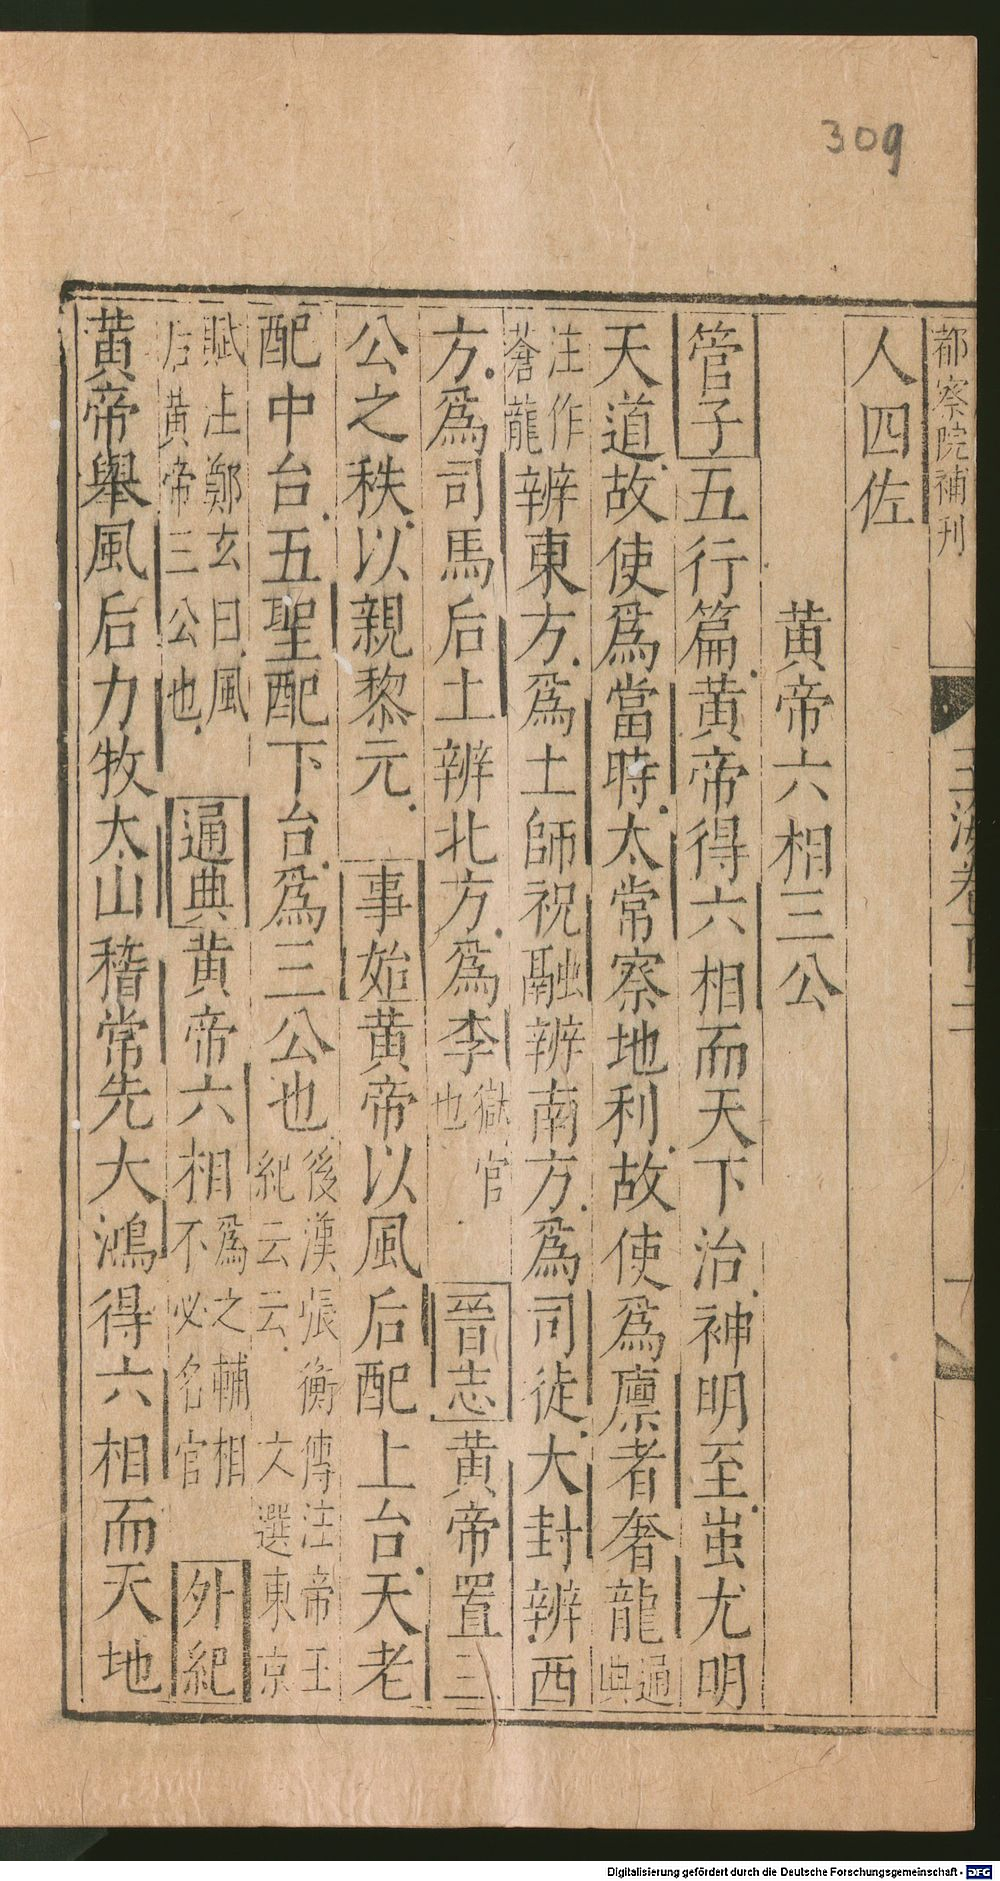 309
都察院補刊
玉海卷一百二
十
人四佐
黄帝六相三公
管子五行篇黄帝得六相而天下治神明至蚩尤明
天道故使爲當時太常察地利故使爲廪者奢龍通典
注作蒼龍辨東方爲土師祝融辨南方爲司徒大封辨西
方爲司馬后土辨北方爲李獄官也晉志黄帝置三
公之秩以親黎元事始黄帝以風后配上台天老
配中台五聖配下台爲三公也後漢張衡傳注帝王紀云云文選東京
賦注鄭玄曰風后黄帝三公也通典黄帝六相爲之輔相不必名官外紀
黄帝舉風后力牧太山稽常先大鴻得六相而天地
Digitalisierung gefördert durch die Deutsche Forschungsgemeinschaft - DFG